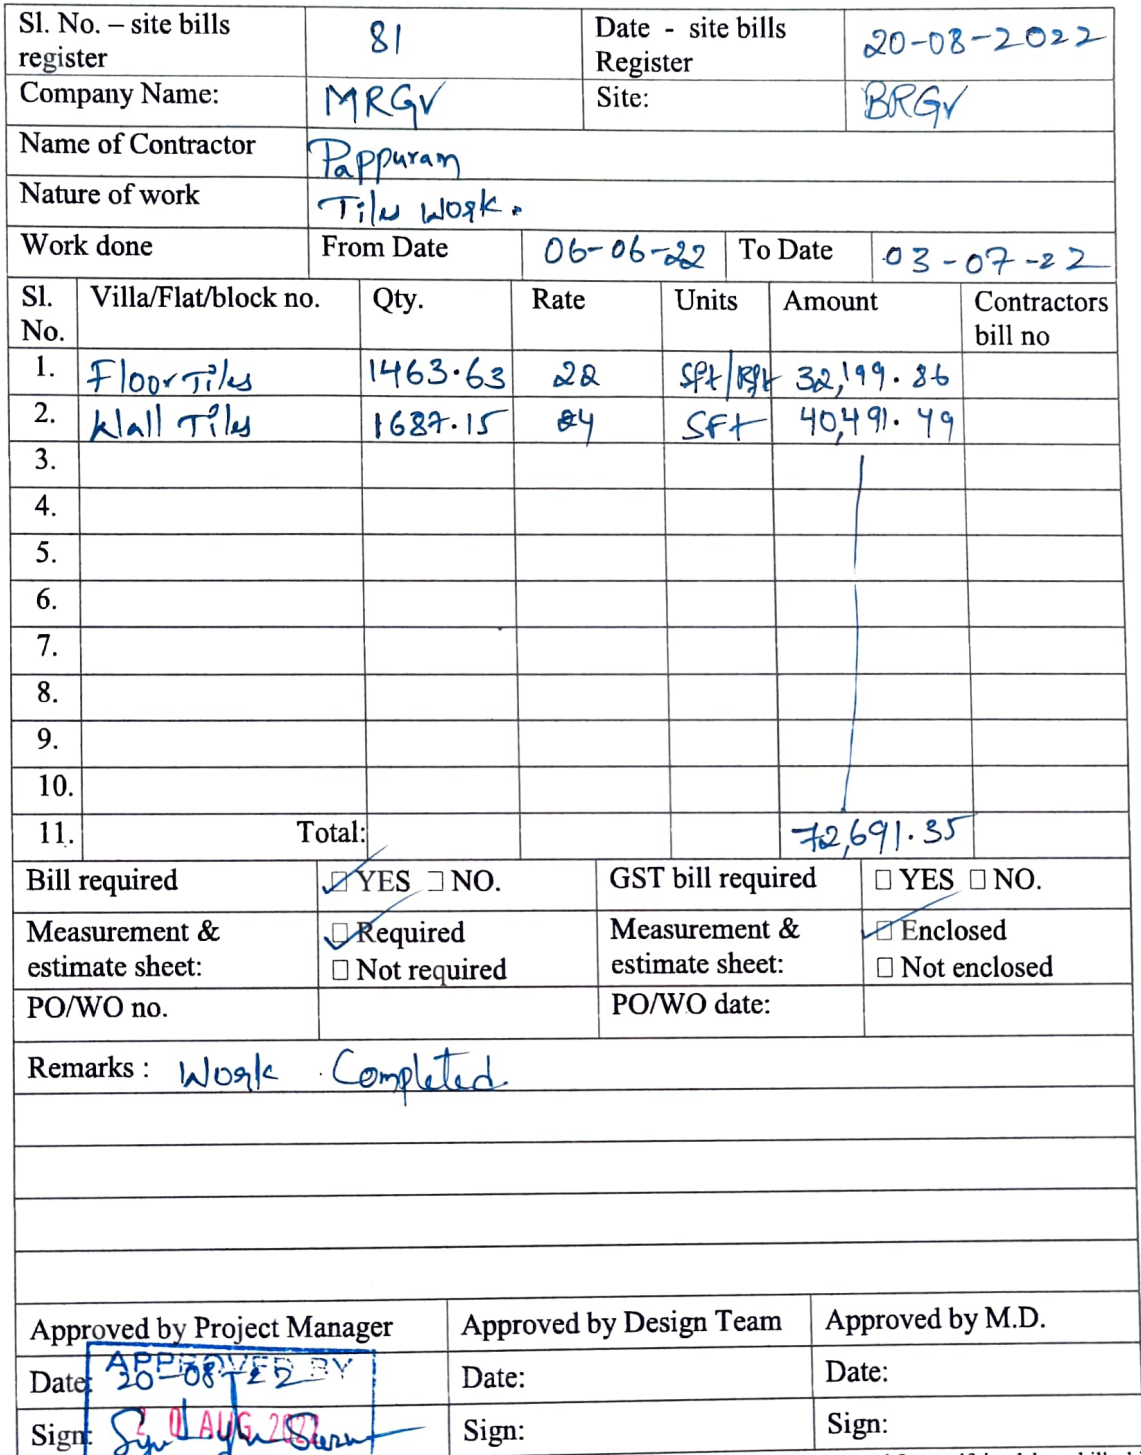 Sl. No. – site bills register 81 Date - site bills Register 20-08-2022
Company Name: MRGV Site: BRGV
Name of Contractor Pappuram
Nature of work Tiles Work.
Work done From Date 06-06-22 To Date 03-07-22
Sl. No. Villa/Flat/block no. Qty. Rate Units Amount Contractors bill no
1. Floor Tiles 1463.63 22 Sft/Rft 32,199.86
2. Wall Tiles 1687.15 24 SFt 40,491.49
3.
4.
5.
6.
7.
8.
9.
10.
11. Total: 72,691.35
Bill required ☑ YES ☐ NO. GST bill required ☐ YES ☐ NO.
Measurement & estimate sheet: ☑ Required ☐ Not required Measurement & estimate sheet: ☑ Enclosed ☐ Not enclosed
PO/WO no. PO/WO date:
Remarks : Work Completed
Approved by Project Manager Approved by Design Team Approved by M.D.
APPROVED BY
Date: 20-08-22 Date: Date:
20 AUG 2022
Sign: Sign: Sign: